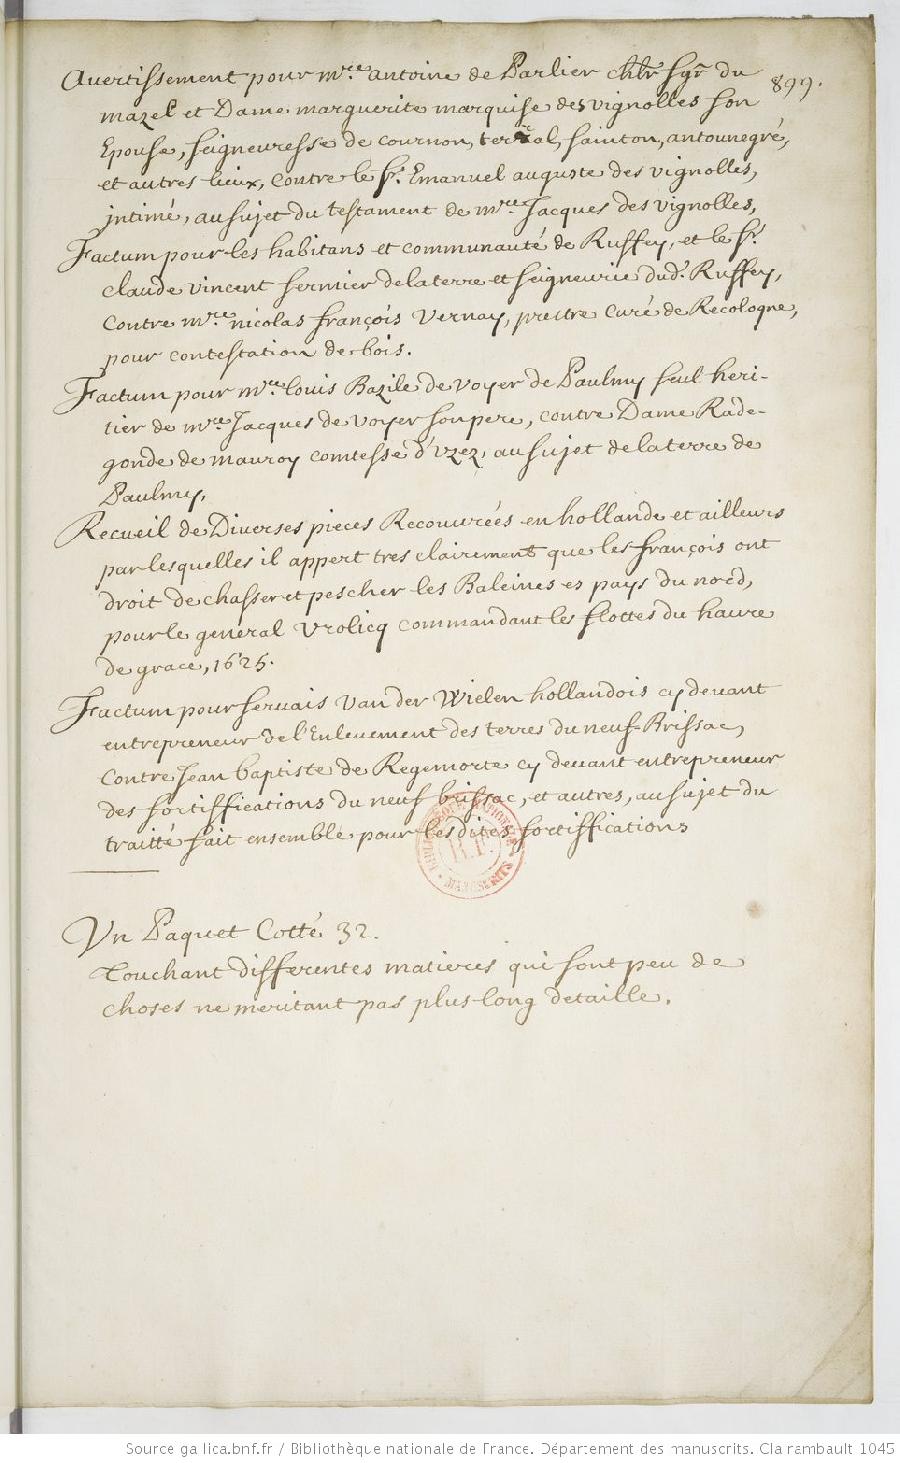 899.
Avertissement pour mre. antoine de Parlier chlr sgr du
mazel et Dame marguerite marquise des vignolles son
Epouse, seigneuresse de cournon, terral, sainton, antounegré,
et autres lieux, contre le sr. Emanuel auguste des vignolles,
jntimé, au sujet du testament de mre Jacques des vignolles,
Factum pour les habitans et communauté de Ruffey, et le sr.
claude vincent fermier de la terre et seigneurie dud. Ruffey,
contre mre nicolas françois vernay, prestre curé de Recologne,
pour contestation de bois.
Factum pour mre. louis Bazile de voyer de Paulmy seul heri-
tier de mre Jacques de voyer son pere, contre Dame Rade-
gonde de mauroy comtesse d'uzez, au sujet de la terre de
Paulmy,
Recueil de Diverses pieces Recouvrées en hollande et ailleurs
par lesquelles il appert tres clairement que les françois ont
droit de chasser et pescher les Baleines es pays du nord,
pour le general vrolicq commandant les flottes du havre
de grace, 1625.
Factum pour servais van der Wielen hollandois cy devant
entrepreneur de l'Enlevement des terres du neuf-Brissac,
contre Jean baptiste de Regemorte cy devant entrepreneur
des fortiffications du neuf brissac, et autres, au sujet du
traitté fait ensemble pour les dites fortiffications
Vn Paquet Cotté 32.
Touchant differentes matieres qui sont peu de
choses ne meritant pas plus long detaille.
BIBLIOTHEQUE NATIONALE
R.F.
MANUSCRITS
Source gallica.bnf.fr / Bibliothèque nationale de France. Département des manuscrits. Clairambault 1045